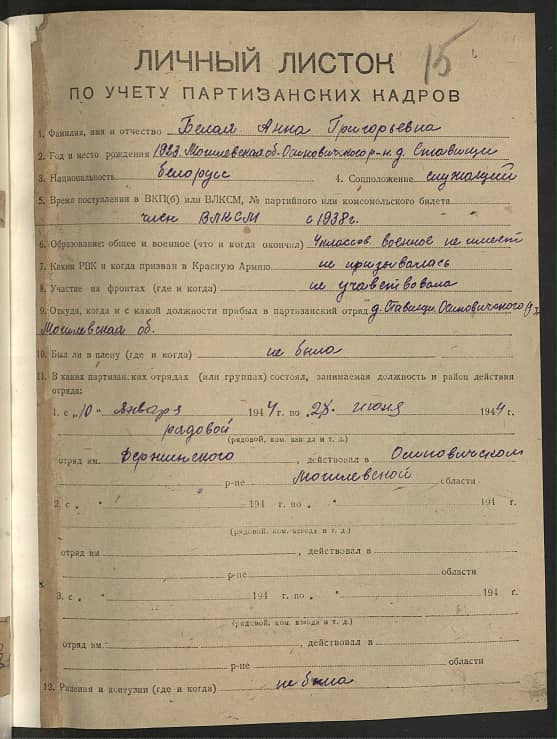 15
ЛИЧНЫЙ ЛИСТОК
ПО УЧЕТУ ПАРТИЗАНСКИХ КАДРОВ
1. Фамилия, имя и отчество Белая Анна Григорьевна
2. Год и место рождения 1923. Могилевская об. Осиповичского р-н. д. Ставищи
3. Национальность белорусс 4. Соцположение служащий
5. Время поступления в ВКП(б) или ВЛКСМ, № партийного или комсомольского билета
член ВЛКСМ с 1938г.
6. Образование: общее и военное (что и когда окончил) 4 классов военное не имеет
7. Каким РВК и когда призван в Красную Армию не призывалась
8. Участие на фронтах (где и когда) не учавствовала
9. Откуда, когда и с какой должности прибыл в партизанский отряд д. Ставищи Осиповичского
Могилевская об.
10. Был ли в плену (где и когда) не была
11. В каких партизанских отрядах (или группах) состоял, занимаемая должность и район действия
отряда:
1. с „10“ января 1944 г. по „28 июня 1944 г.
рядовой
(рядовой, ком. взвода и т. д.)
отряд им. Держинского, действовал в Осиповичском
р-не Могилевской области
2. с „ “ 194 г. по „ “ 194 г.
(рядовой, ком. взвода и т. д.)
отряд им , действовал в
р-не области
3. с „ “ 194 г. по „ “ 194 г.
(рядовой, ком. взвода и т. д.)
отряд им. , действовал в
р-не области
12. Ранения и контузии (где и когда) не была